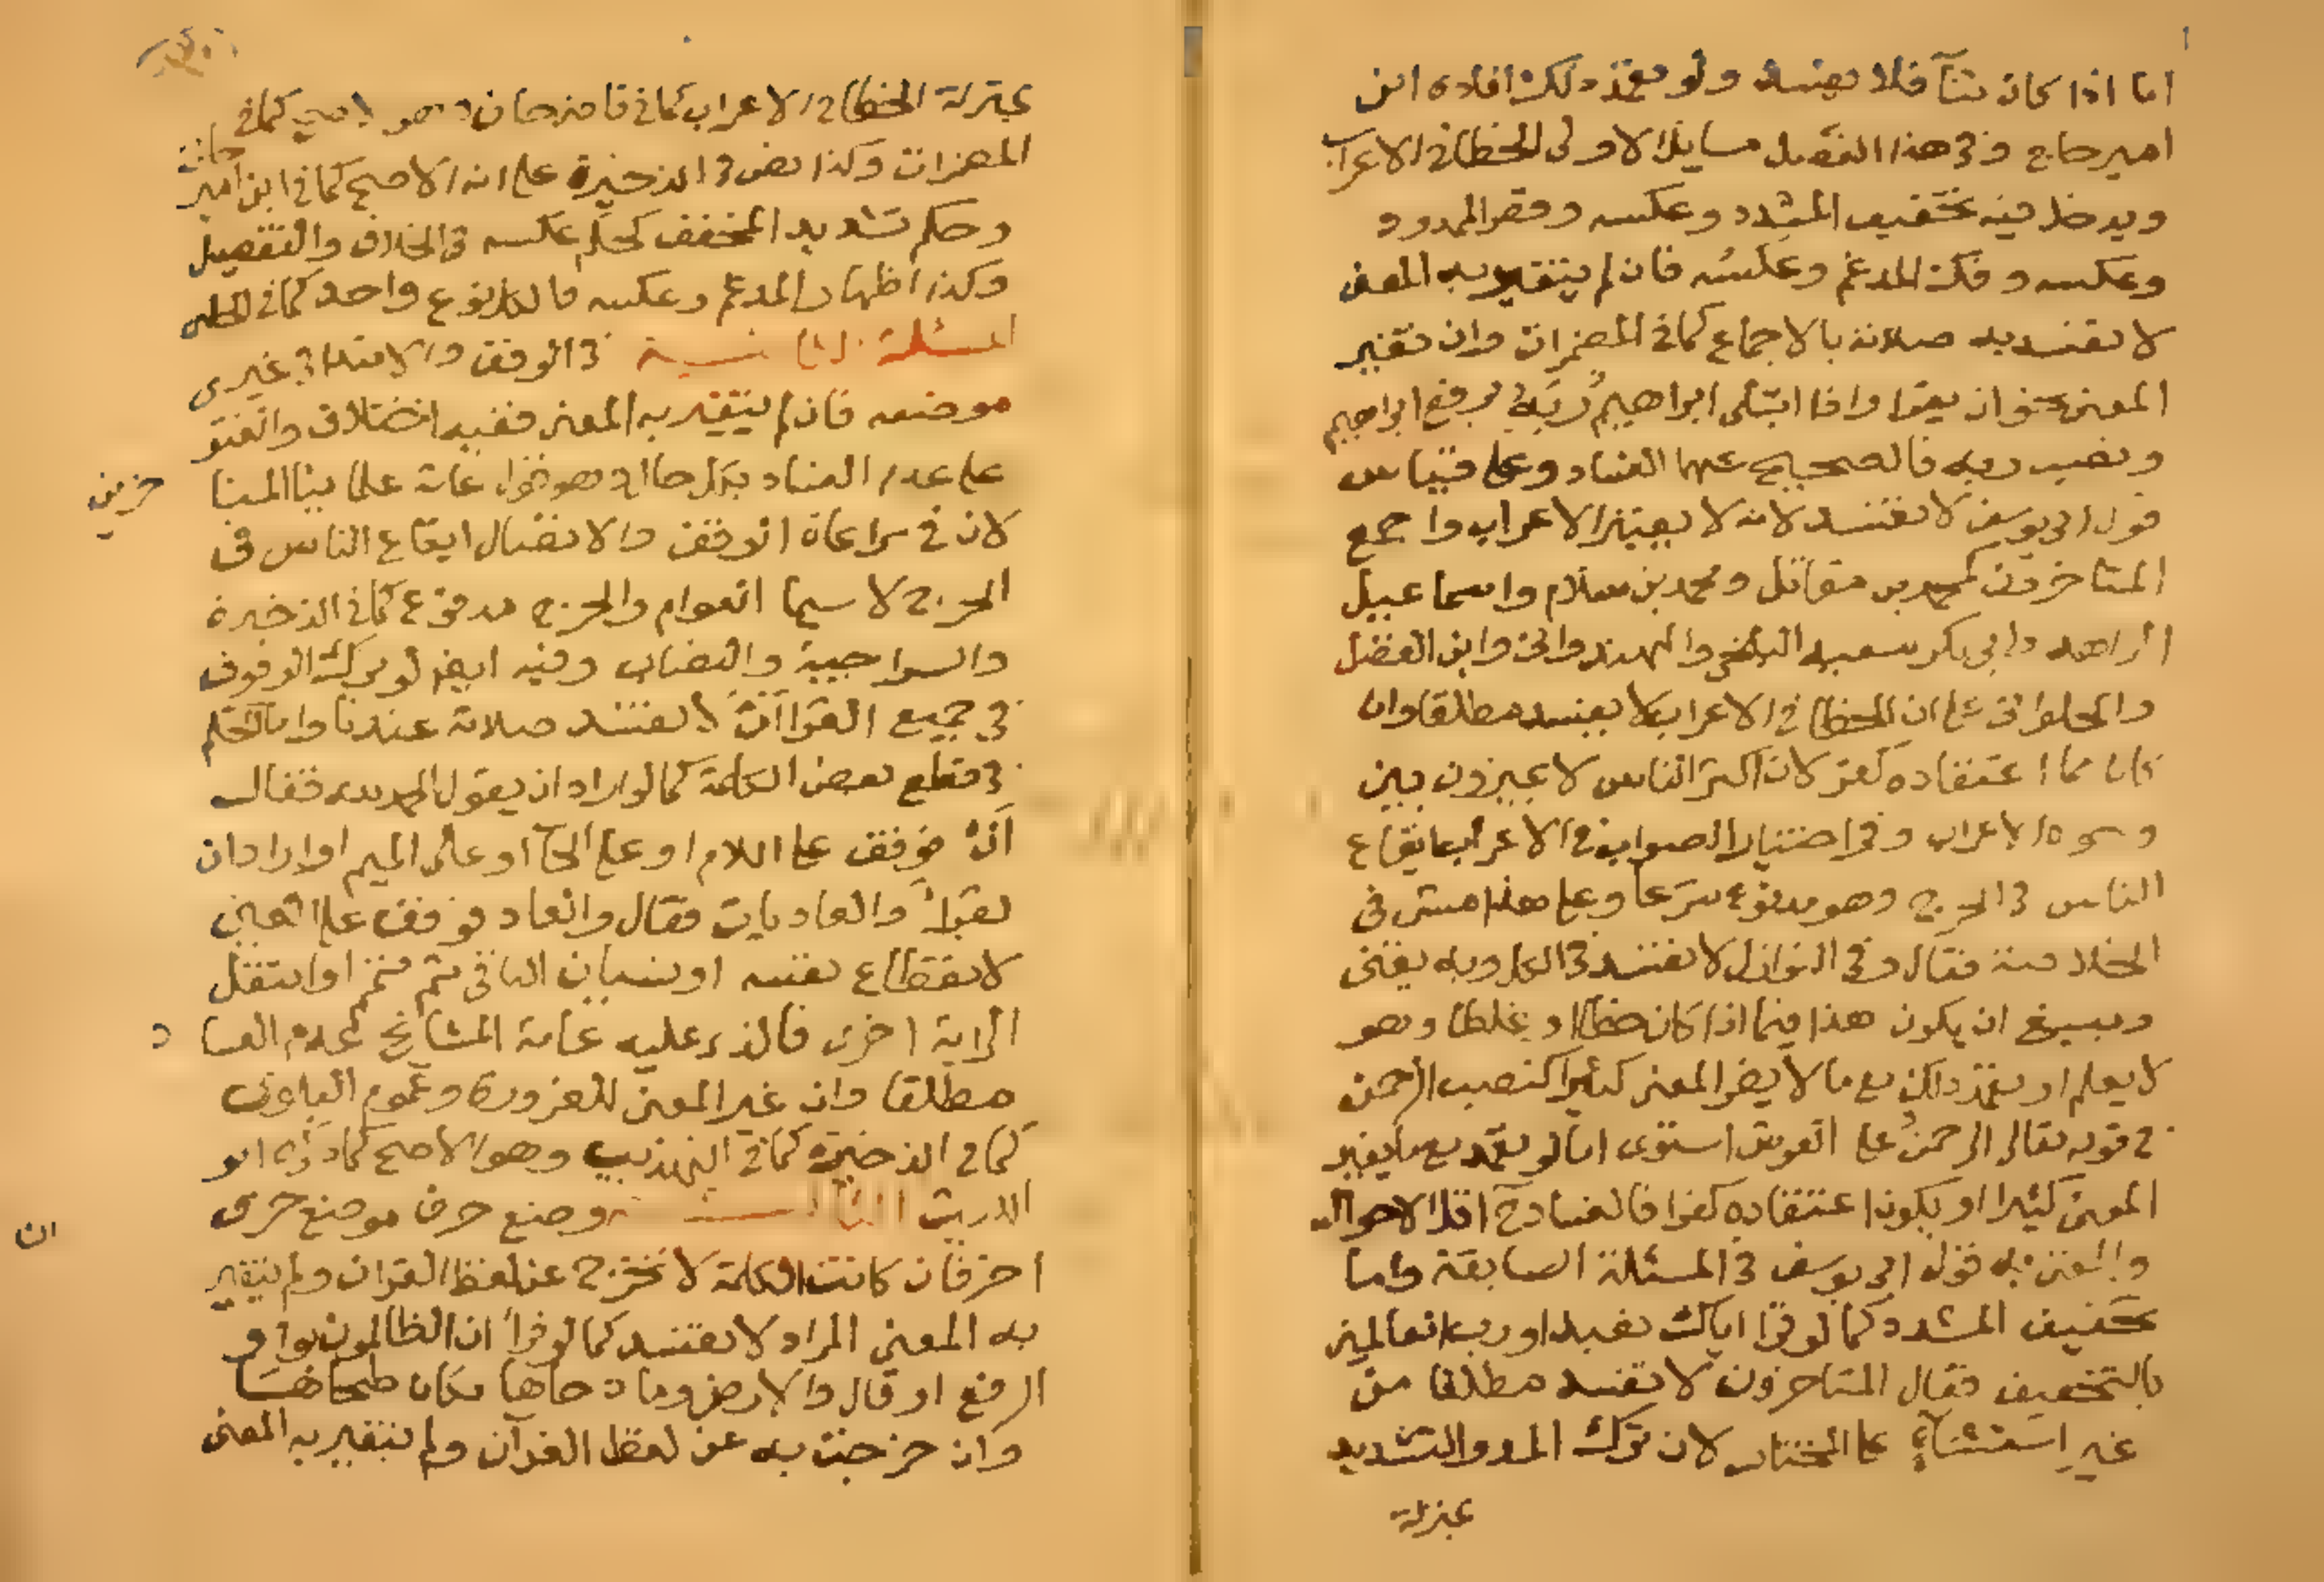 اما اذا كان ثناً فلا يفسد ولو تعمد ذلك افاده ابن
امير حاج وفي هذا الفصل مسايل الاولى الخطا في الاعراب
ويدخل فيه تخفيف المشدد وعكسه وقصر الممدود
وعكسه وفك المدغم وعكسه فان لم يتغير به المعنى
لا تفسد به صلاته بالاجماع كما في المضمرات وان تغير
المعنى نحو ان يقرا واذا ابتلى ابراهيمُ ربَه برفع ابراهيم
ونصب ربه فالصحيح عنهما الفساد وعلى قياس
قول ابي يوسف لا تفسد لانه لا يعتبر الاعراب واجمع
المتاخرون كمحمد بن مقاتل ومحمد بن سلام واسماعيل
الزاهد وابي بكر سعيد البلخي والهندواني وابن الفضل
والحلواني على ان الخطا في الاعراب لا يفسد مطلقا وان
كان مما اعتقاده كفر لان اكثر الناس لا يميزون بين
وجوه الاعراب وفي اختيار الصواب في الاعراب ايقاع
الناس في الحرج وهو مدفوع شرعا وعلى هذا مشى في
الخلاصة فقال وفي النوازل لا تفسد في الكل وبه يفتى
وينبغي ان يكون هذا فيما اذا كان خطا او غلطا وهو
لا يعلم او تعمد ذلك مع ما لا يغير المعنى كثيرا كنصب الرحمن
في قوله تعالى الرحمن على العرش استوى اما لو تعمد مع ما يغير
المعنى كثيرا او يكون اعتقاده كفرا فالفساد ح اقل الاحوال
والمفتى به قول ابي يوسف في المسئلة السابقة واما
تخفيف المشدد كما لو قرا اياك نعبد او رب العالمين
بالتخفيف فقال المتاخرون لا تفسد مطلقا من
غير استثناءٍ على المختار لان ترك المد والتشديد
بمنزلة
بمنزلة الخطا في الاعراب كما في قاضيخان وهو الاصح كما في
المضمرات وكذا نص في الذخيرة على انه الاصح كما في ابن امير
حاج
وحكم تشديد المخفف كحكم عكسه في الخلاف والتفصيل
وكذا اظهار المدغم وعكسه فالكل نوع واحد كما في الحلبي
المسئلة الثانية في الوقف والابتداء في غير
موضعه فان لم يتغير به المعنى ففيه اختلاف والفتوى
على عدم الفساد بكل حال وهو قول عامة علمائنا المتا
خرين
لان في مراعاة الوقف والاتصال ايقاع الناس في
الحرج لا سيما العوام والحرج مدفوع كما في الذخيرة
والسراجية والنصاب وفيه ايضا لو ترك الوقوف
في جميع القرآن لا تفسد صلاته عندنا واما الحكم
في قطع بعض الكلمة كما لو اراد ان يقول الحمد لله فقال
ال فوقف على اللام او على الحآ او على الميم او اراد ان
يقرأ والعاديات فقال والعاد فوقف على العين
لانقطاع نفسه او نسيان الباقي ثم تمم او انتقل
الى اية اخرى فالذي عليه عامة المشايخ عدم الفسا
د
مطلقا وان غير المعنى للضرورة وعموم البلوى
كما في الذخيرة كما في التهذيب وهو الاصح كما ذكره ابو
الليث الثالثة وضع حرف موضع حرف
ان
اخر فان كانت الكلمة لا تخرج عن لفظ القران ولم يتغير
به المعنى المراد لا تفسد كما لو قرأ ان الظالمون بواو
الرفع او قال والارض وما دحاها مكان طحاها
وان خرجت به عن لفظ القرآن ولم يتغير به المعنى